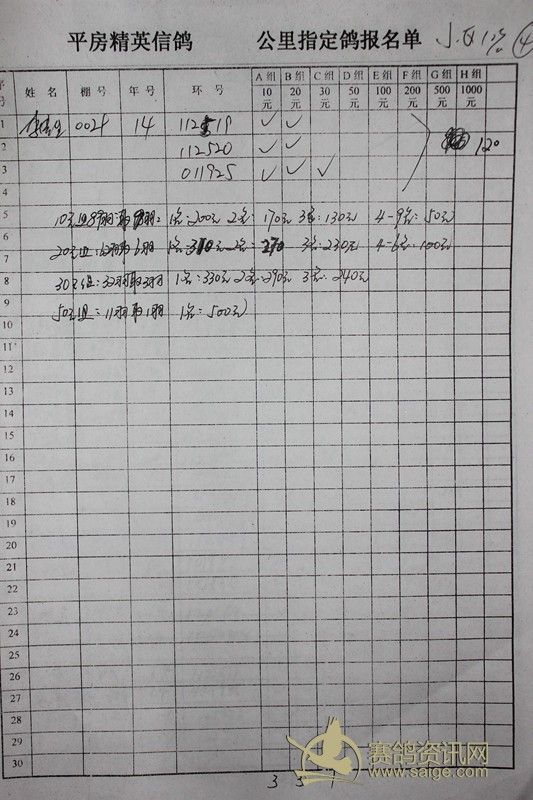 平房精英信鸽 公里指定鸽报名单 ④
序号 姓名 棚号 年号 环号 A组10元 B组20元 C组30元 D组50元 E组100元 F组200元 G组500元 H组1000元
1 0024 14 112519 ✓ ✓
2 112520 ✓ ✓ 120
3 011925 ✓ ✓ ✓
4
5 10元组 1名:200元 2名:170元 3名:130元 4-9名:50元
6
7 20元组 1名:310元 2名:270 3名:230元 4-6名:100元
8 30元组:32羽取3羽 1名:330元 2名:290元 3名:240元
9 50元组:11羽取1羽 1名:500元
10
11
12
13
14
15
16
17
18
19
20
21
22
23
24
25
26
27
28
29
30
3 3 1
赛鸽资讯网
www.saige.com